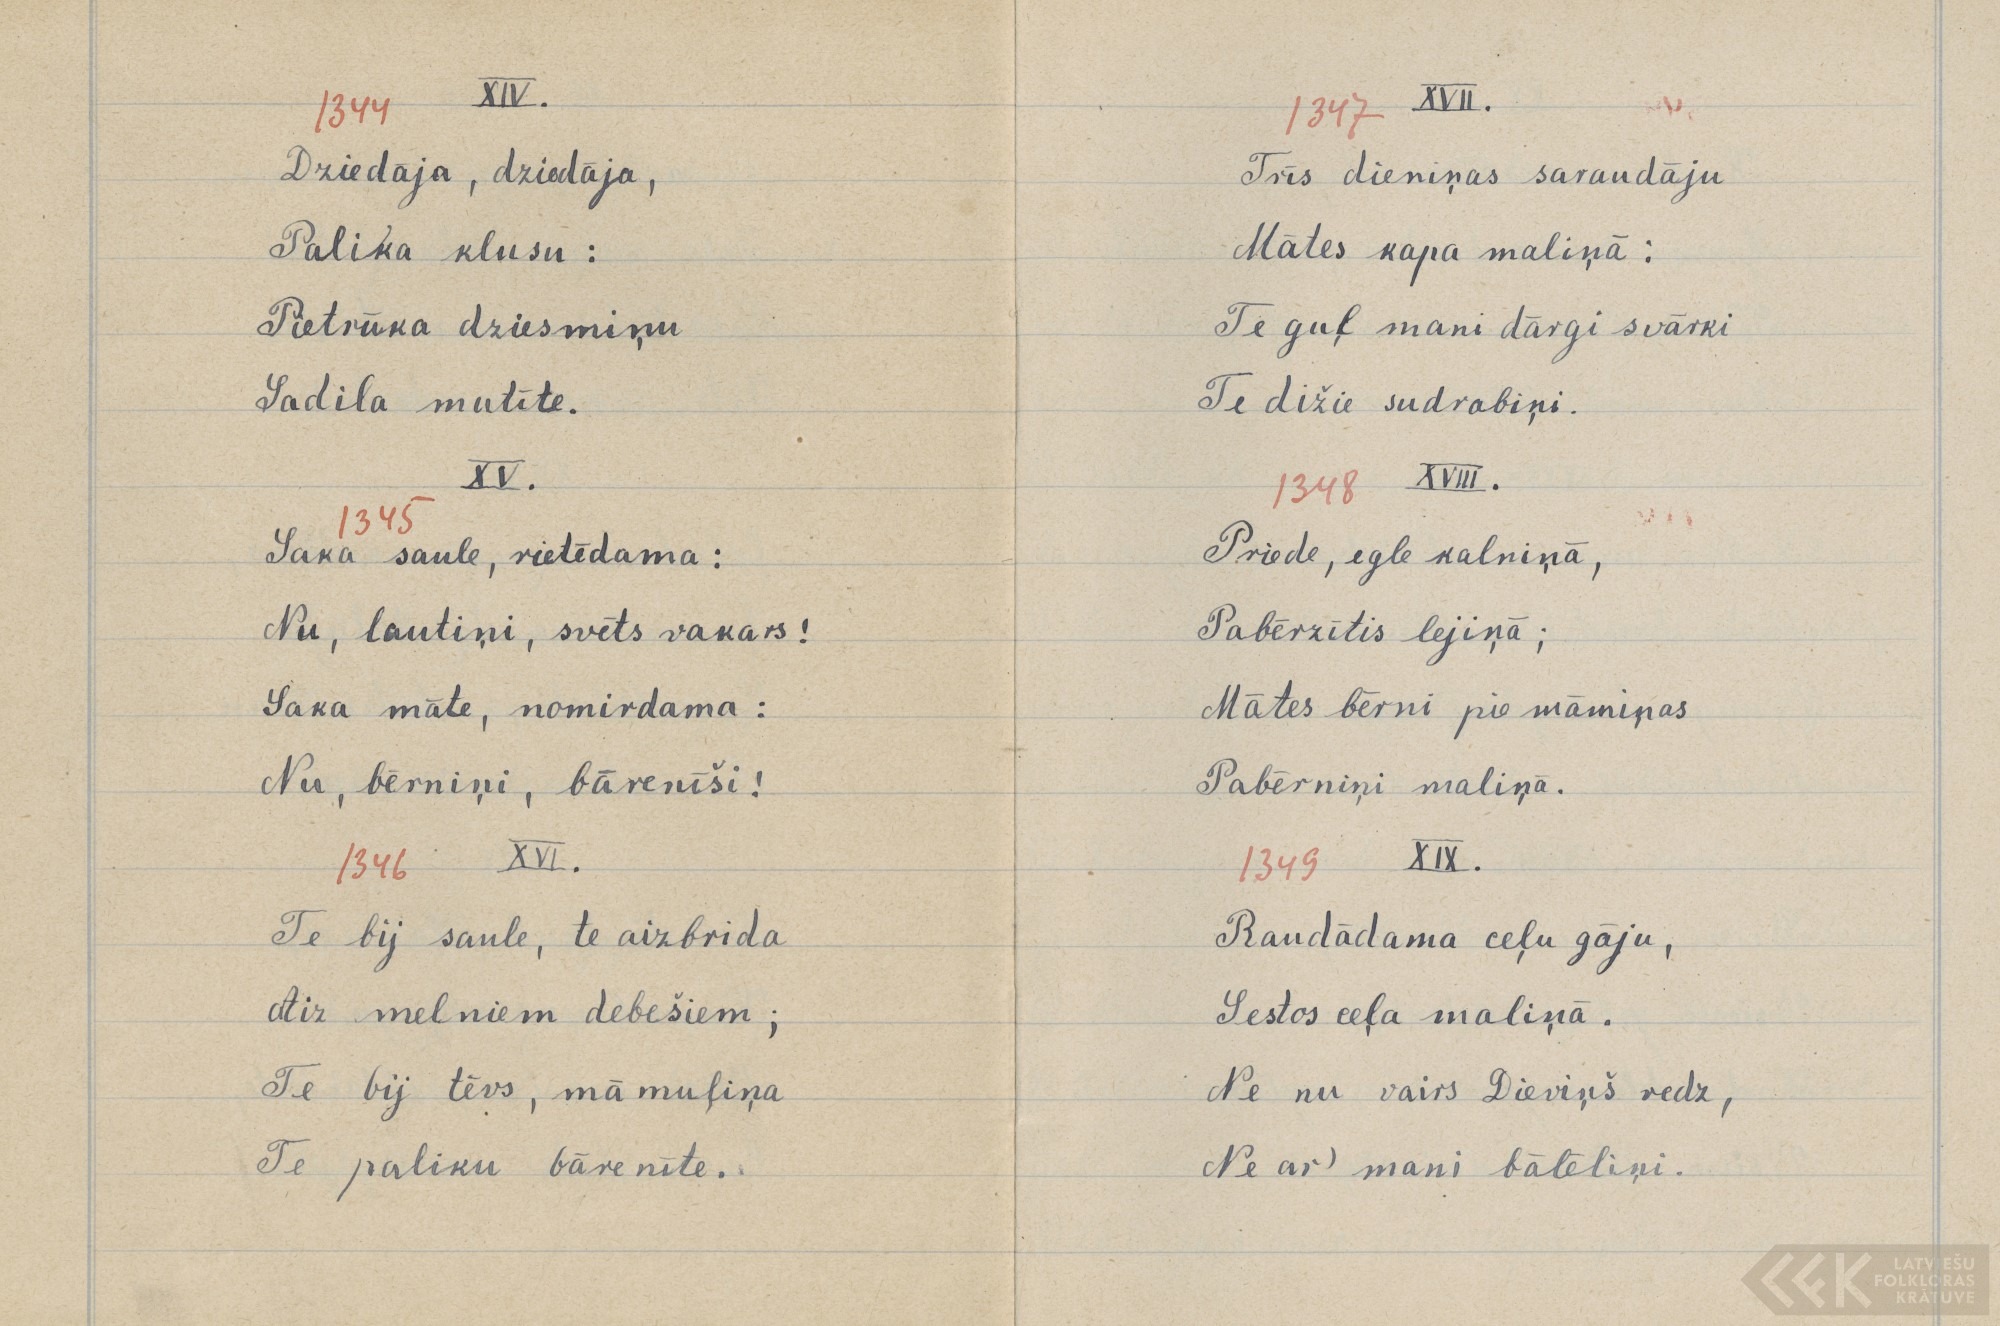 1344 XIV.
Dziedāja, dziedāja,
Palika klusu:
Pietrūka dziesmiņu
Sadila mutīte.
XV.
1345
Saka saule, rietēdama:
Nu, lautiņi, svēts vakars!
Saka māte, nomirdama:
Nu, bērniņi, bārenīši!
1346 XVI.
Te bij saule, te aizbrida
Aiz melniem debešiem;
Te bij tēvs, māmuļiņa
Te paliku bārenīte.
1347 XVII.
Trīs dieniņas saraudāju
Mātes kapa maliņā:
Te guļ mani dārgi svārki
Te dižie sudrabiņi.
1348 XVIII.
Priede, egle kalniņā,
Pabērzītis lejiņā;
Mātes bērni pie māmiņas
Pabērniņi maliņā.
1349 XIX.
Raudādama ceļu gāju,
Sestos ceļa maliņā.
Ne nu vairs Dieviņš redz,
Ne ar' mani bātēliņi.
LATVIEŠU
FOLKLORAS
KRĀTUVE